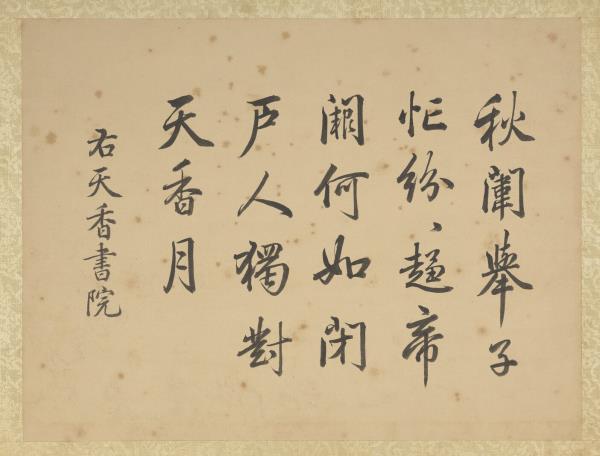 秋闈舉子
忙紛、趨帝
闕何如閉
戶人獨對
天香月
右天香書院